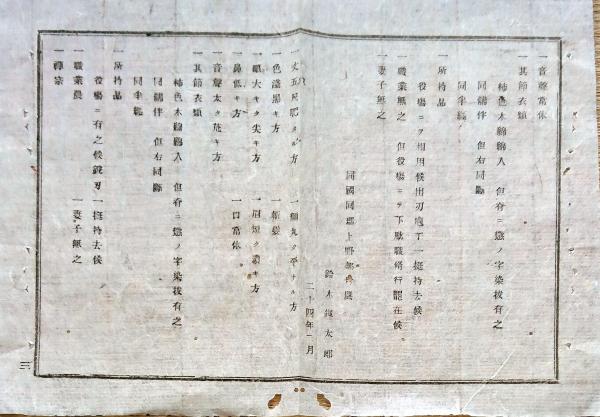 一音聲常体
一其節衣類
柿色木綿綿入 但脊ニ懲ノ字染抜有之
同繻伴 但右同斷
同半纏
一所持品
役場ニヲ相用候出刃庖丁一挺持去候
職業無之 但役場ニヲ下駄職稽行罷在候
一妻子無之
同國同郡上野
鈴木 太郎
二十四年 月
一丈五尺 タル方
一色淺黒キ方
一眼大キク尖キ方 一眉短ク濃キ方
一鼻低キ方 一口常体
一音聲太ク キ方
一其節衣類
柿色木綿綿入 但脊ニ懲ノ字染抜有之
同繻伴 但右同斷
同半纏
一所持品
役場ニ有之候鋭刃一挺持去候
一職業農 一妻子無之
一禪宗
三